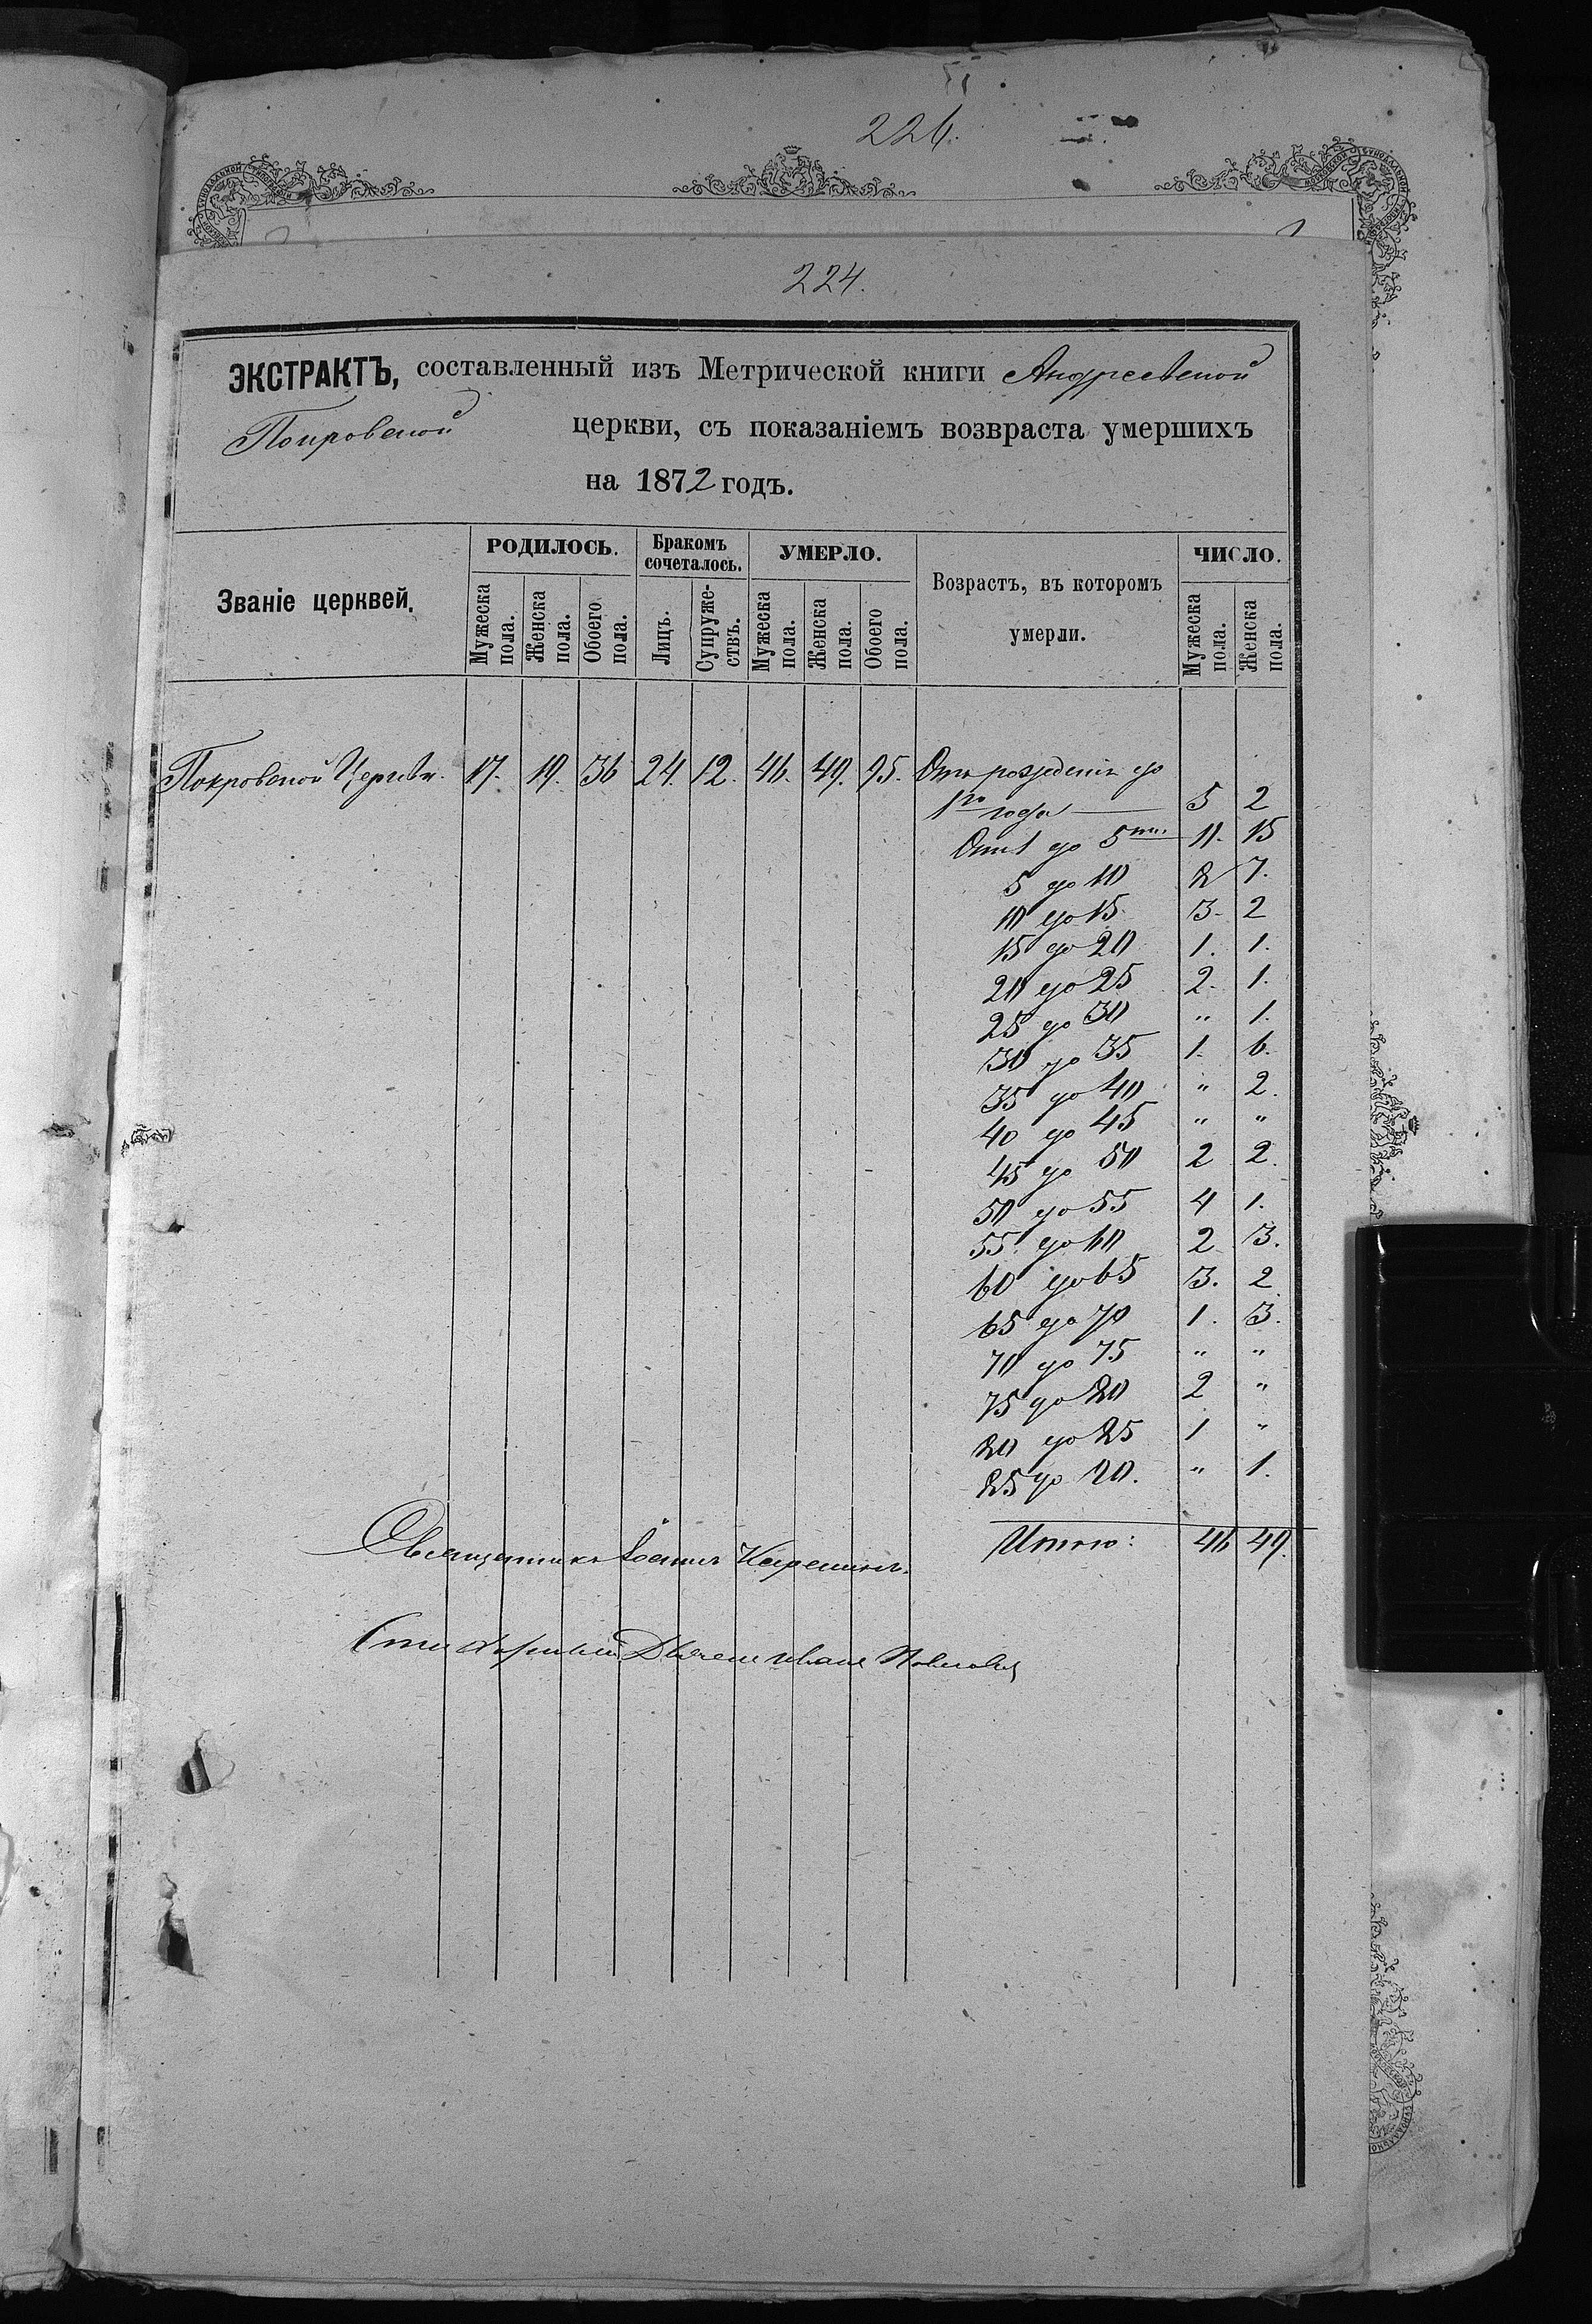 226.
224.
ЭКСТРАКТЪ, составленный изъ Метрической книги Андреевской
Покровской церкви, съ показаніемъ возвраста умершихъ
на 1872 годъ.
Званіе церквей.
РОДИЛОСЬ.
Мужеска пола.
Женска пола.
Обоего пола.
Бракомъ сочеталось.
Лицъ.
Супружествъ.
УМЕРЛО.
Мужеска пола.
Женска пола.
Обоего пола.
Возрастъ, въ которомъ
умерли.
ЧИСЛО.
Мужеска пола.
Женска пола.
Покровской Церкви. 17. 19. 36 24. 12. 46. 49. 95. Отъ рожденія до
1го года 5 2
Отъ 1 до 5ти 11. 15
5 до 10 8 7.
10 до 15 3. 2
15 до 20 1. 1.
20 до 25 2. 1.
25 до 30 " 1.
30 до 35 1. 6.
35 до 40 " 2.
40 до 45 " "
45 до 50 2 2.
50 до 55 4 1.
55 до 60 2 3.
60 до 65 3. 2
65 до 70 1. 3.
70 до 75 " "
75 до 80 2 "
80 до 85 1 "
85 до 90. " 1.
Итого: 46 49.
Священникъ Іоаннъ